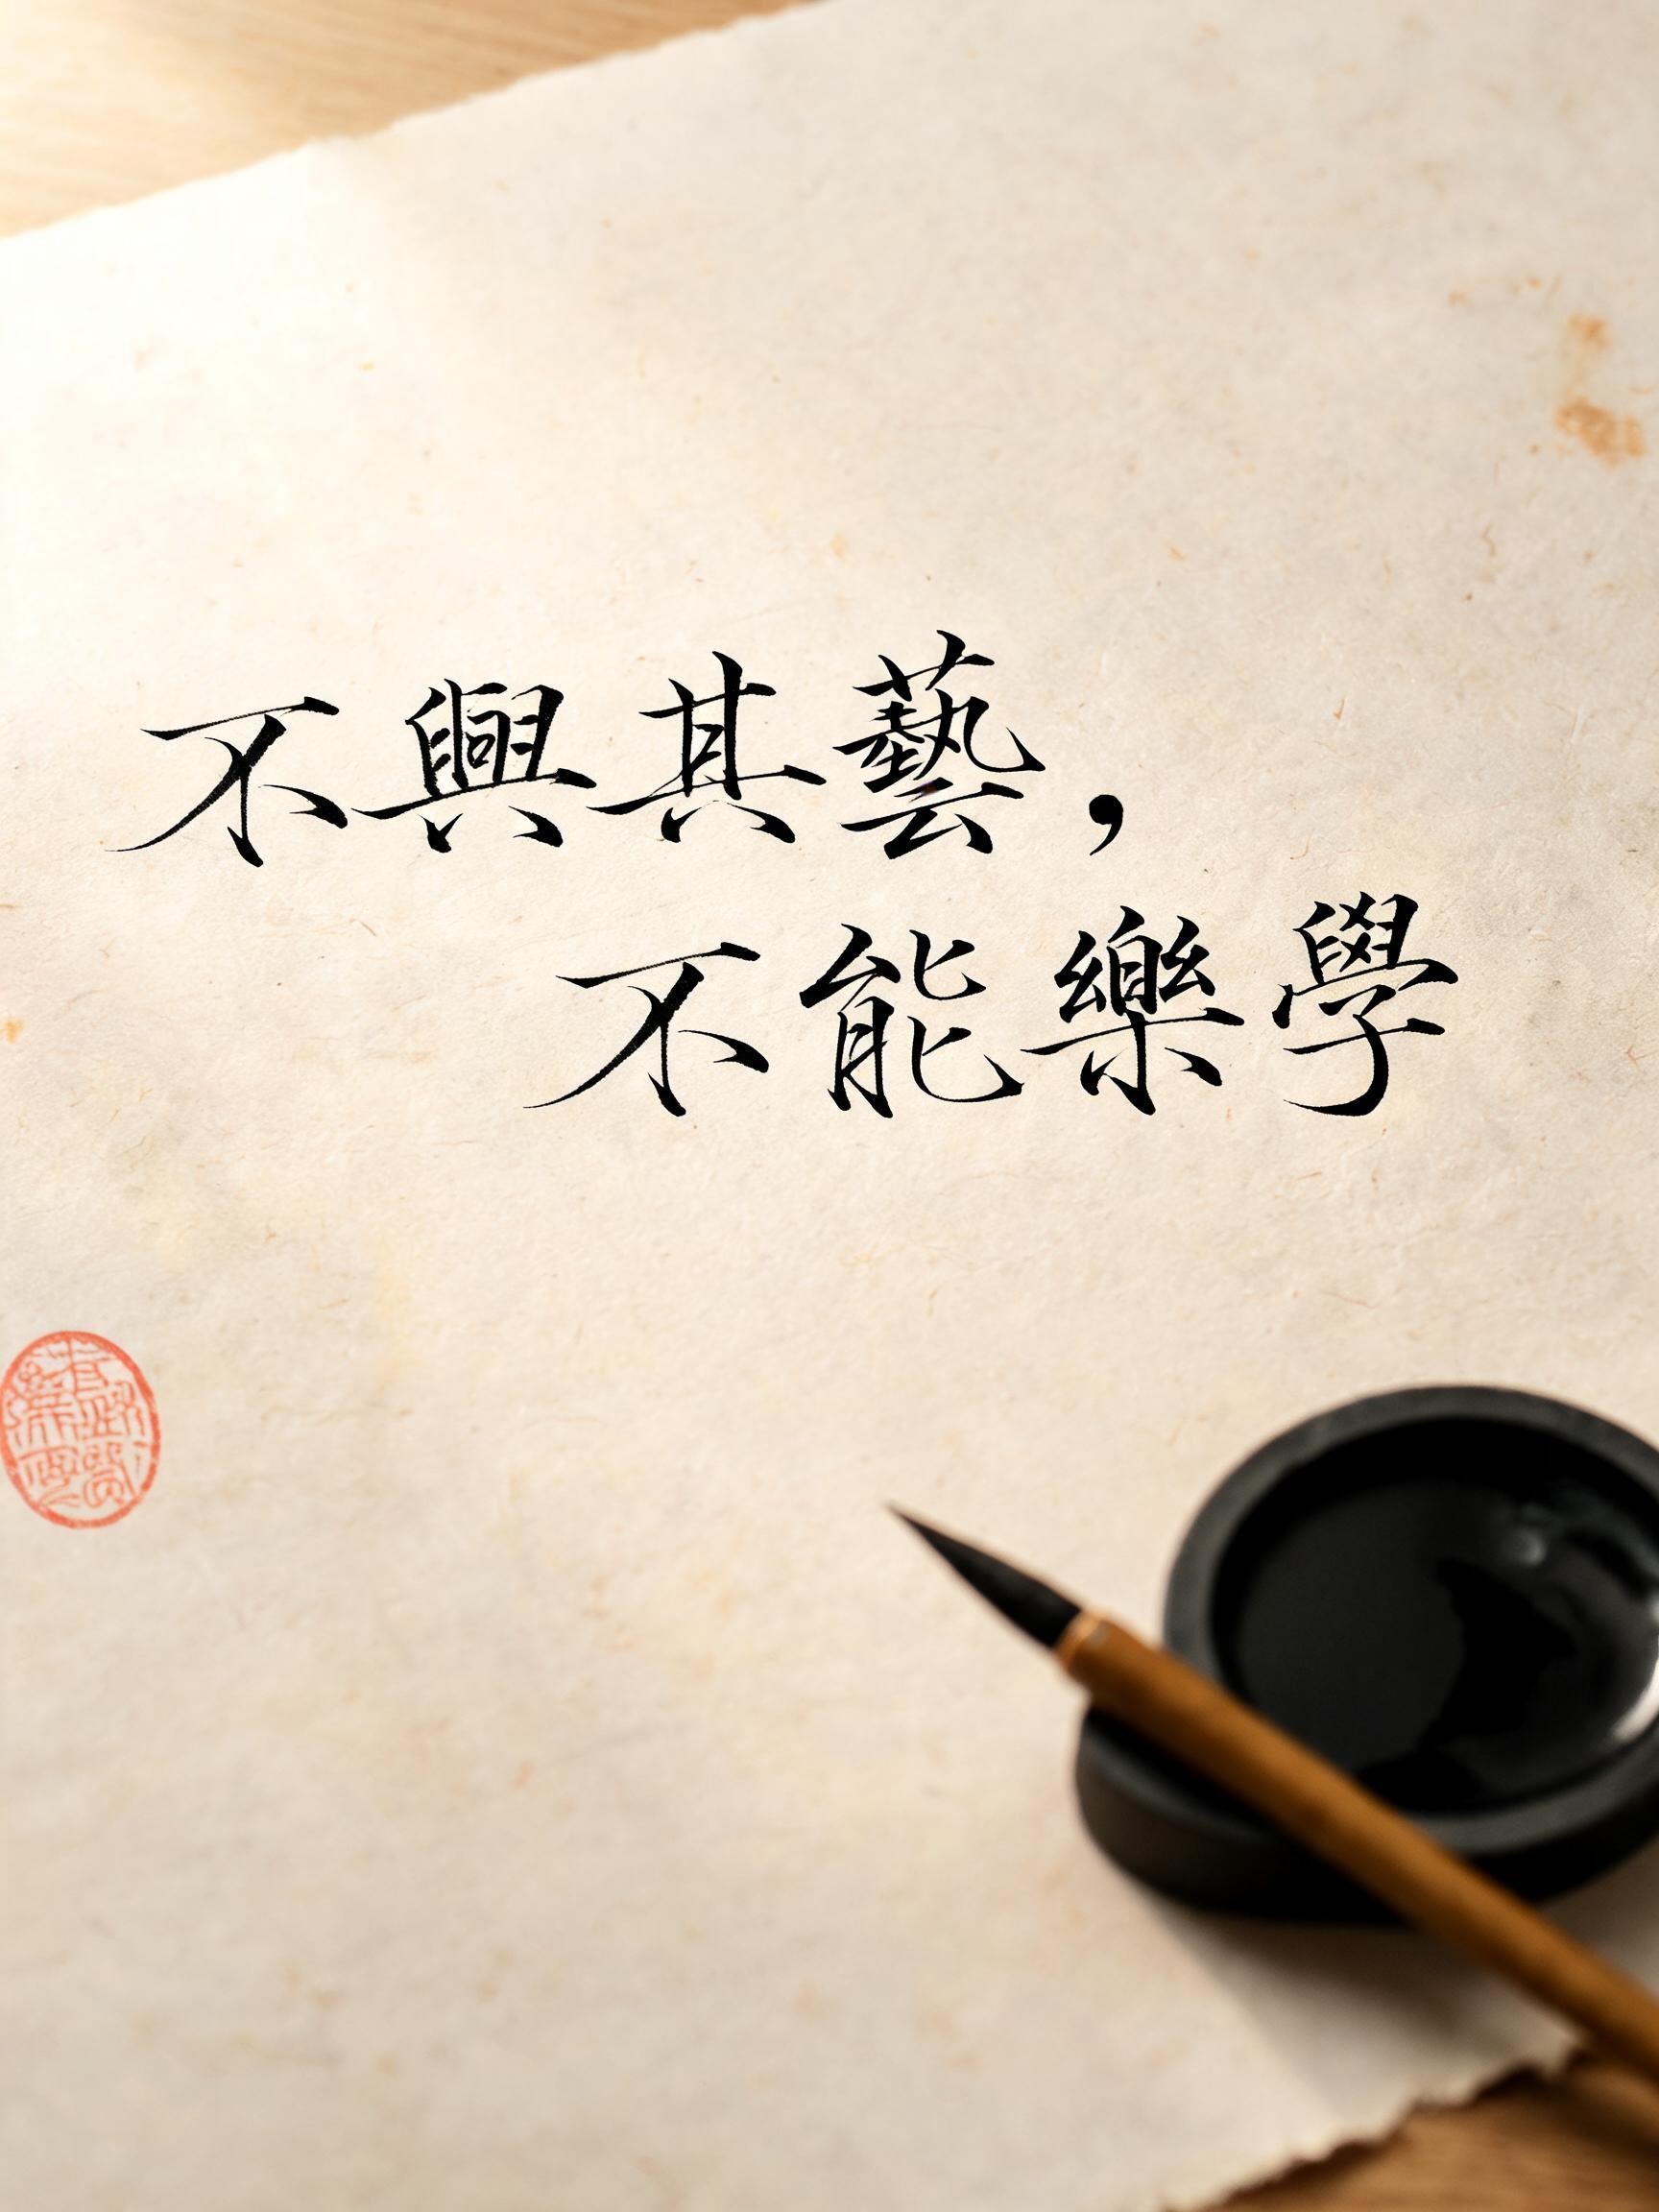 不興其藝，
不能樂學